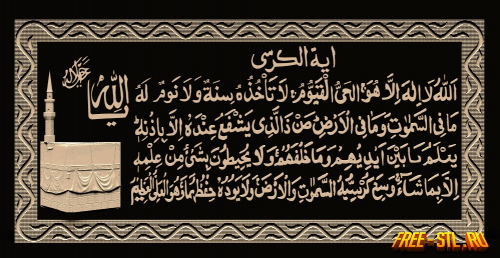 اية الكرسى
جل جلاله
يا الله
الله لا اله الا هو الحى القيوم لا تأخذه سنة ولا نوم له
ما فى السموت وما فى الارض من ذا الذى يشفع عنده الا باذنه
يعلم ما بين ايديهم وما خلفهم ولا يحيطون بشئ من علمه
الا بما شاء وسع كرسيه السموت والارض ولا يوده حفظهما وهو العلى العظيم
FREE-STL.RU